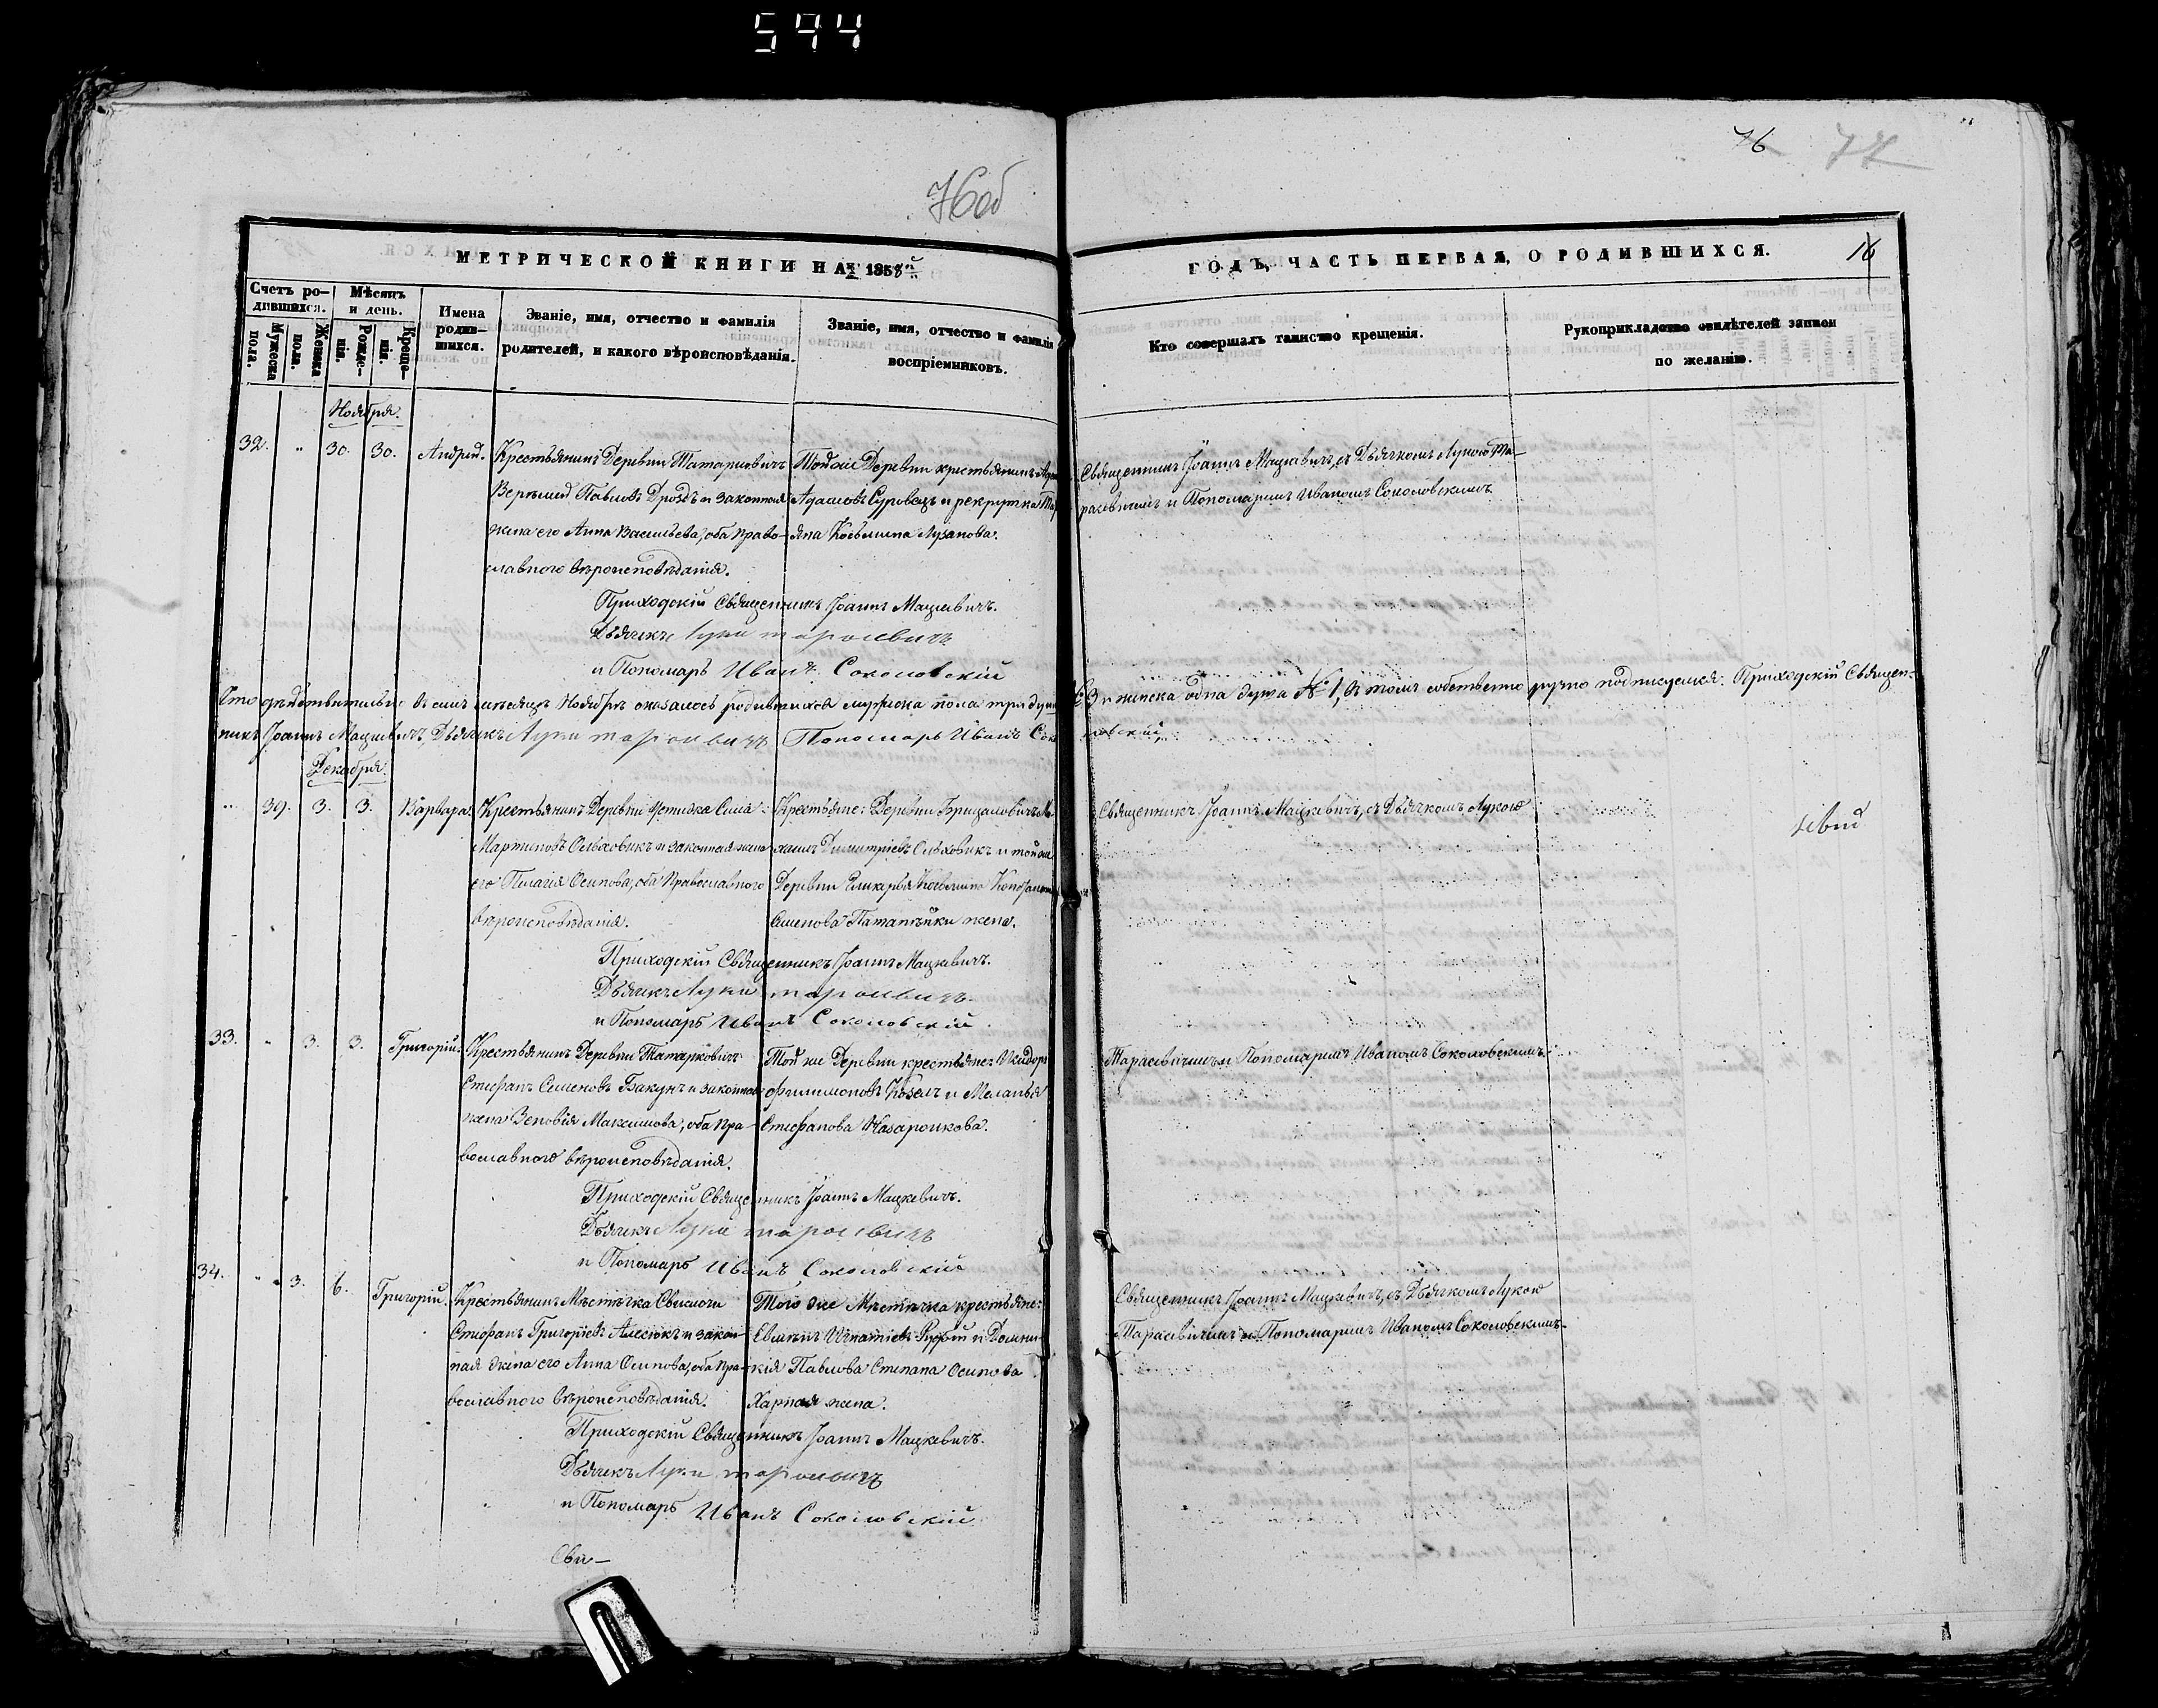 594
76об
76
77
МЕТРИЧЕСКОЙ КНИГИ НА 1858й
ГОДЪ, ЧАСТЬ ПЕРВАЯ, О РОДИВШИХСЯ.
16
Счетъ ро-
дившихся.
Мужеска
пола.
Женска
пола.
Мѣсяцъ
и день.
Рожде-
нія.
Креще-
нія.
Имена
родив-
шихся.
Званіе, имя, отчество и фамилія
родителей, и какого вѣроисповѣданія.
Званіе, имя, отчество и фамилія
воспріемниковъ.
Кто совершалъ таинство крещенія.
Рукоприкладство свидѣтелей записи
по желанію.
Ноября.
32. " 30. 30. Андрей. Крестьянинъ Деревни Татарковичъ Тойже Деревни крестьянинъ
Павловъ Дроздъ и законная Адамовъ Суровецъ и рекрутка
жена его Анна Васильева, оба Право- Козьмина Лузанова.
славнаго вѣроисповѣданія.
Священникъ Іоаннъ Мацкевичъ, съ Дьячкомъ Лукою Та-
расевичемъ и Пономаремъ Иваномъ Соколовскимъ.
Приходскій Священникъ Іоаннъ Мацкевичъ.
Дьячекъ Лука Тарасевичъ
и Пономарь Иванъ Соколовскій
Что дѣйствительно въ семъ мѣсяцѣ Ноябрѣ оказалось родившихся мужска пола три души № 3 и женска одна душа № 1, въ томъ собственно ручно подписуемся. Приходскій Священ-
никъ Іоаннъ Мацкевичъ, Дьячекъ Лука Тарасевичъ Пономарь Иванъ Соколовскій,
Декабря.
" 39. 3. 3. Варвара. Крестьянинъ Деревни Устижа Сила Крестьяне: Деревни Брицаловичъ
Мартиновъ Ольховикъ и законная жена Димитріевъ Ольховикъ и тойже
его Пелагія Осипова, оба Православнаго Деревни Гликарья Козьмина
вѣроисповѣданія. Семенова Патапейки жена.
Священникъ Іоаннъ Мацкевичъ, съ Дьячкомъ Лукою
Приходскій Священникъ Іоаннъ Мацкевичъ.
Дьячекъ Лука Тарасевичъ
и Пономарь Иванъ Соколовскій.
33. " 3. 3. Григорій. Крестьянинъ Деревни Татарковичъ Той же Деревни крестьяне: Исидоръ
Стефанъ Семеновъ Бакунъ и законная Филимоновъ Козелъ и Меланья
жена Зеновія Максимова, оба Пра- Стефанова Назаронкова.
вославнаго вѣроисповѣданія.
Тарасевичемъ и Пономаремъ Иваномъ Соколовскимъ.
Приходскій Священникъ Іоаннъ Мацкевичъ.
Дьячекъ Лука Тарасевичъ
и Пономарь Иванъ Соколовскій
34. " 3. 6. Григорій. Крестьянинъ Мѣстечка Свислочи Того же Мѣстечка крестьяне:
Стефанъ Григоріевъ Алесюкъ и закон- Игнатіевъ и Домни-
ная жена его Анна Осипова, оба Пра- кія Павлова Степана Осипова
вославнаго вѣроисповѣданія. Харная жена.
Священникъ Іоаннъ Мацкевичъ, съ Дьячкомъ Лукою
Тарасевичемъ и Пономаремъ Иваномъ Соколовскимъ.
Приходскій Священникъ Іоаннъ Мацкевичъ.
Дьячекъ Лука Тарасевичъ
и Пономарь Иванъ Соколовскій
Сви-